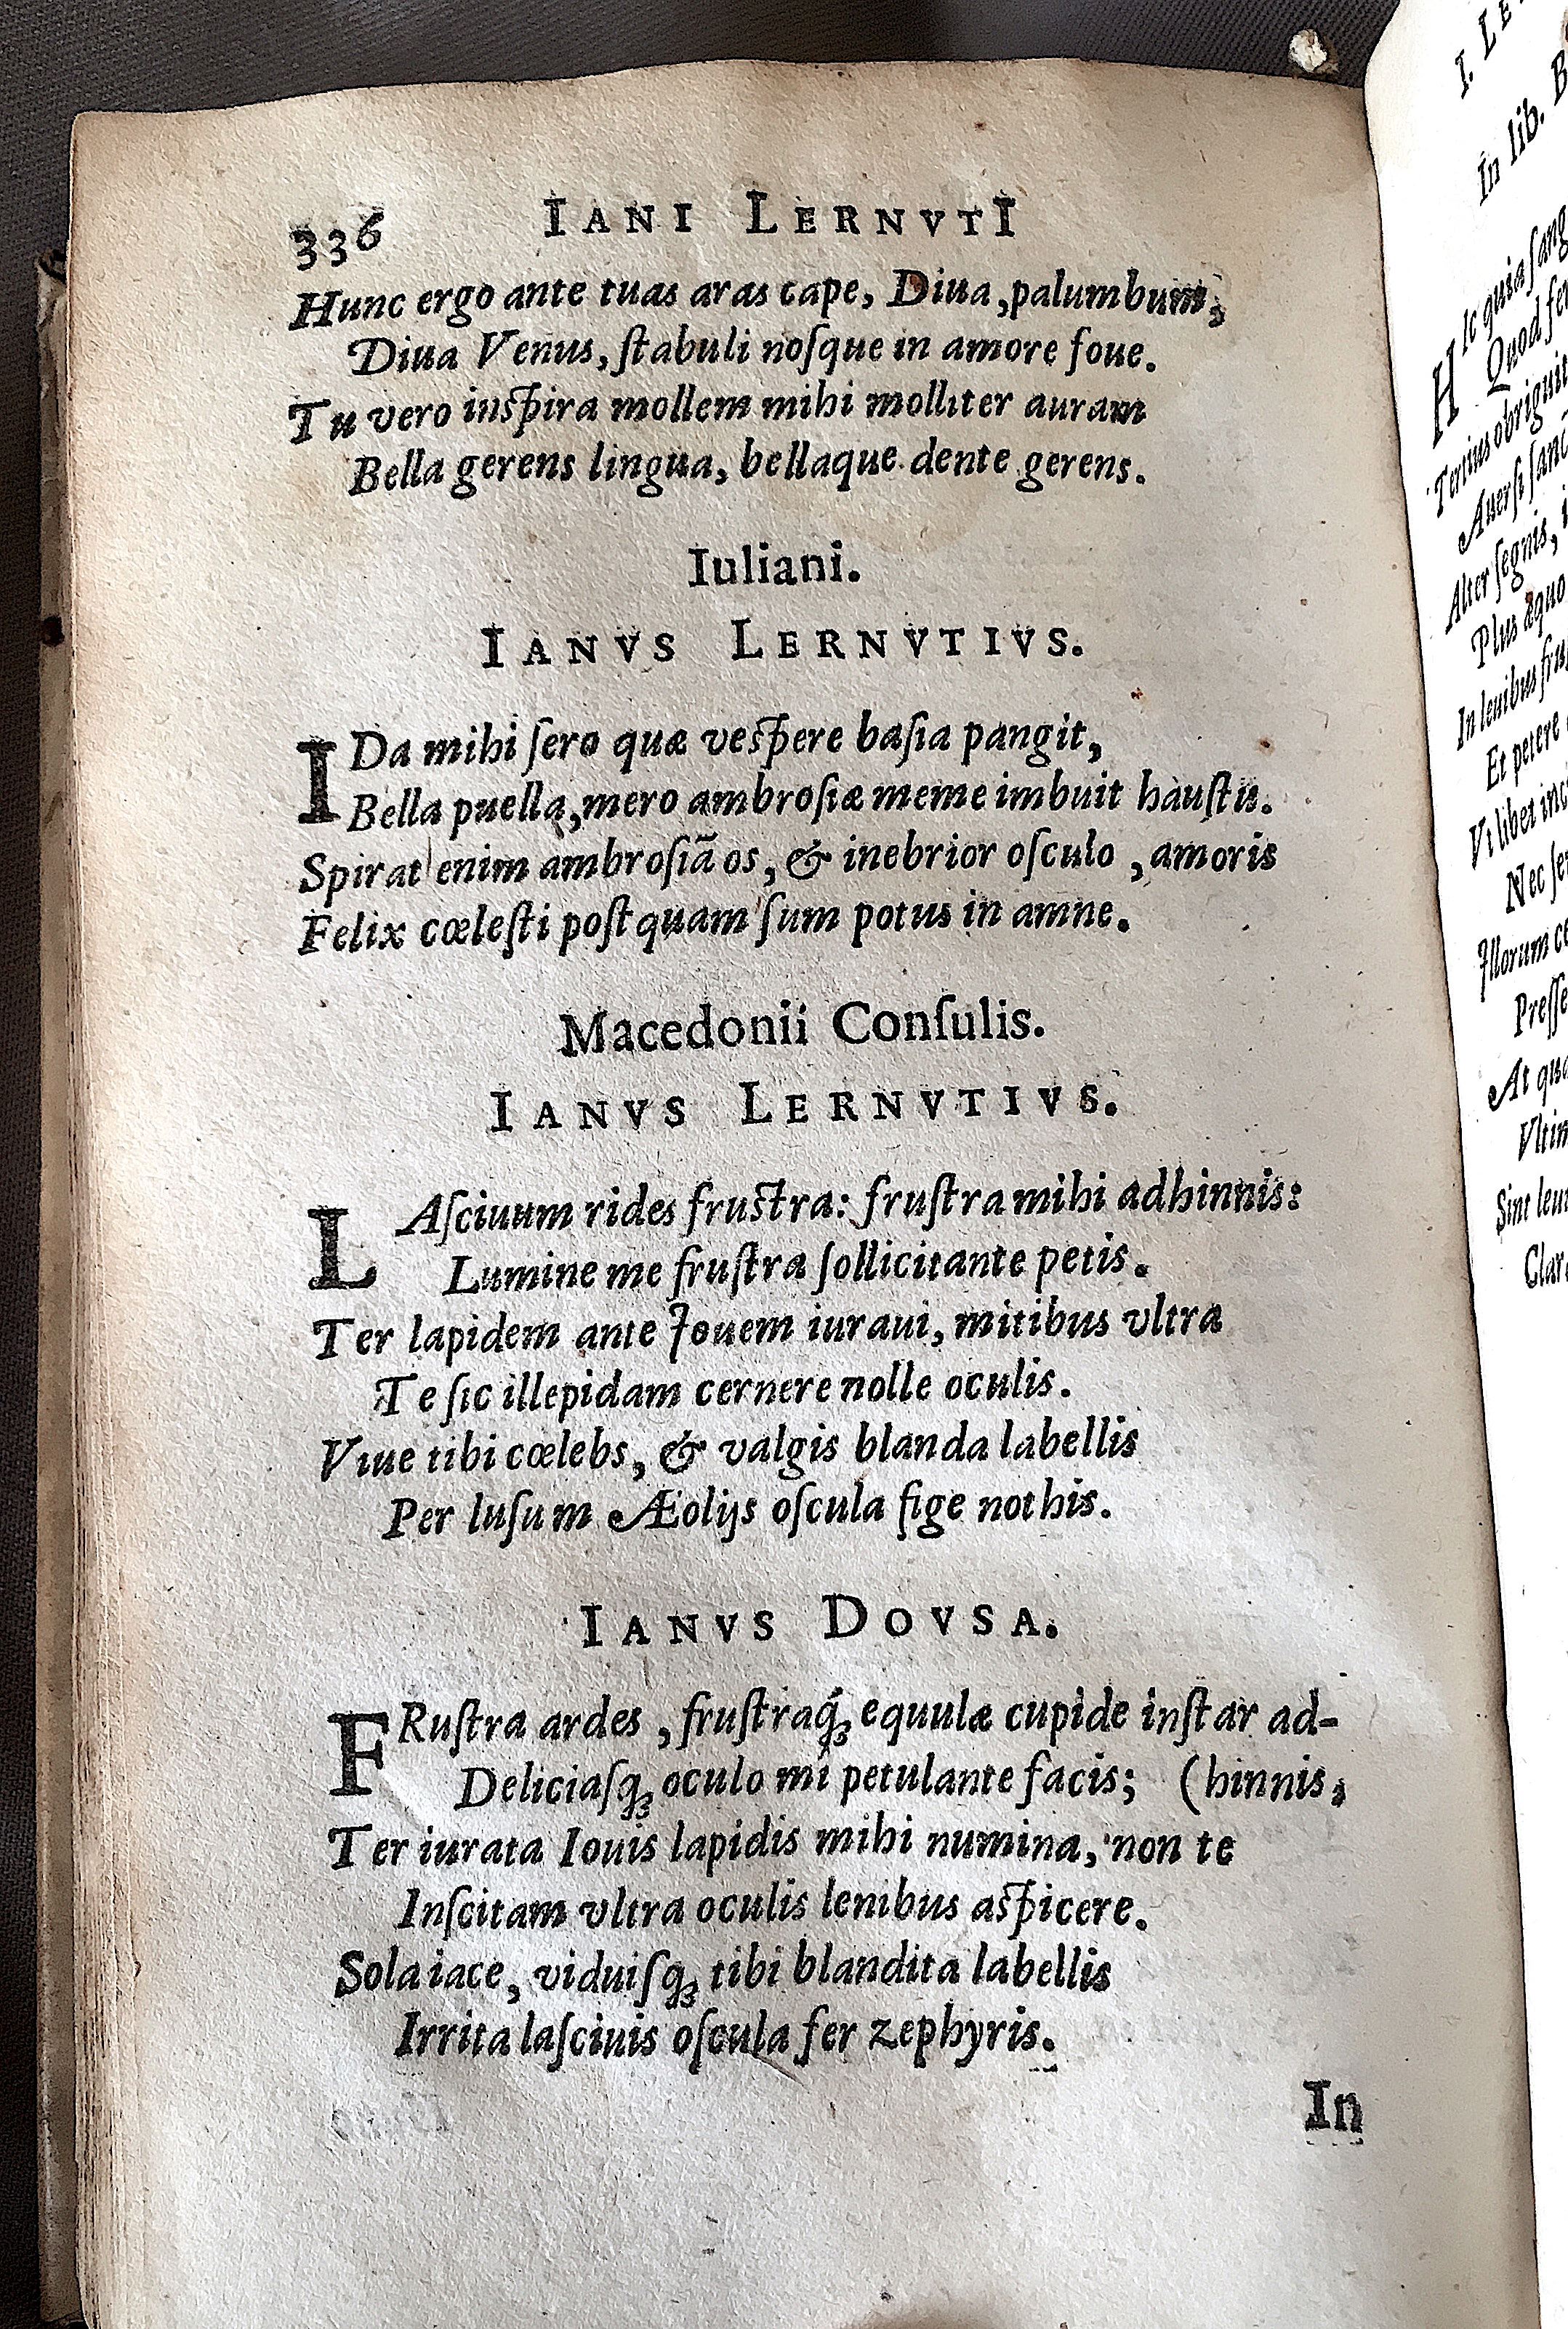 336 IANI LERNVTI
Hunc ergo ante tuas aras cape, Diua, palumbum,
Diua Venus, ſtabuli noſque in amore foue.
Tu vero inſpira mollem mihi molliter auram
Bella gerens lingua, bellaque dente gerens.
Iuliani.
IANVS LERNVTIVS.
IDa mihi ſero quæ veſpere baſia pangit,
Bella puella, mero ambroſiæ meme imbuit hauſtu.
Spirat enim ambroſiã os, & inebrior oſculo, amoris
Felix cœleſti poſtquam ſum potus in amne.
Macedonii Conſulis.
IANVS LERNVTIVS.
LAſciuum rides fruſtra: fruſtra mihi adhinnis:
Lumine me fruſtra ſollicitante petis.
Ter lapidem ante Iouem iuraui, mitibus vltra
Te ſic illepidam cernere nolle oculis.
Viue tibi cœlebs, & valgis blanda labellis
Per luſum Æolijs oſcula fige nothis.
IANVS DOVSA.
FRuſtra ardes, fruſtraq́ꝫ equulæ cupide inſtar ad-
Deliciaſqꝫ oculo mî petulante facis; (hinnis,
Ter iurata Iouis lapidis mihi numina, non te
Inſcitam vltra oculis lenibus aſpicere.
Sola iace, viduiſqꝫ tibi blandita labellis
Irrita laſciuis oſcula fer zephyris.
In
I. LE
In lib. B
HIc quia ſang
Quod fe
Tertius obriguit
Auerſi ſanc
Alter ſegnis, i
Plus æquo
In lenibus fru
Et petere
Vt libet inc
Nec ſe
Illorum ce
Preſſe
At qu
Vltim
Sint leu
Clar